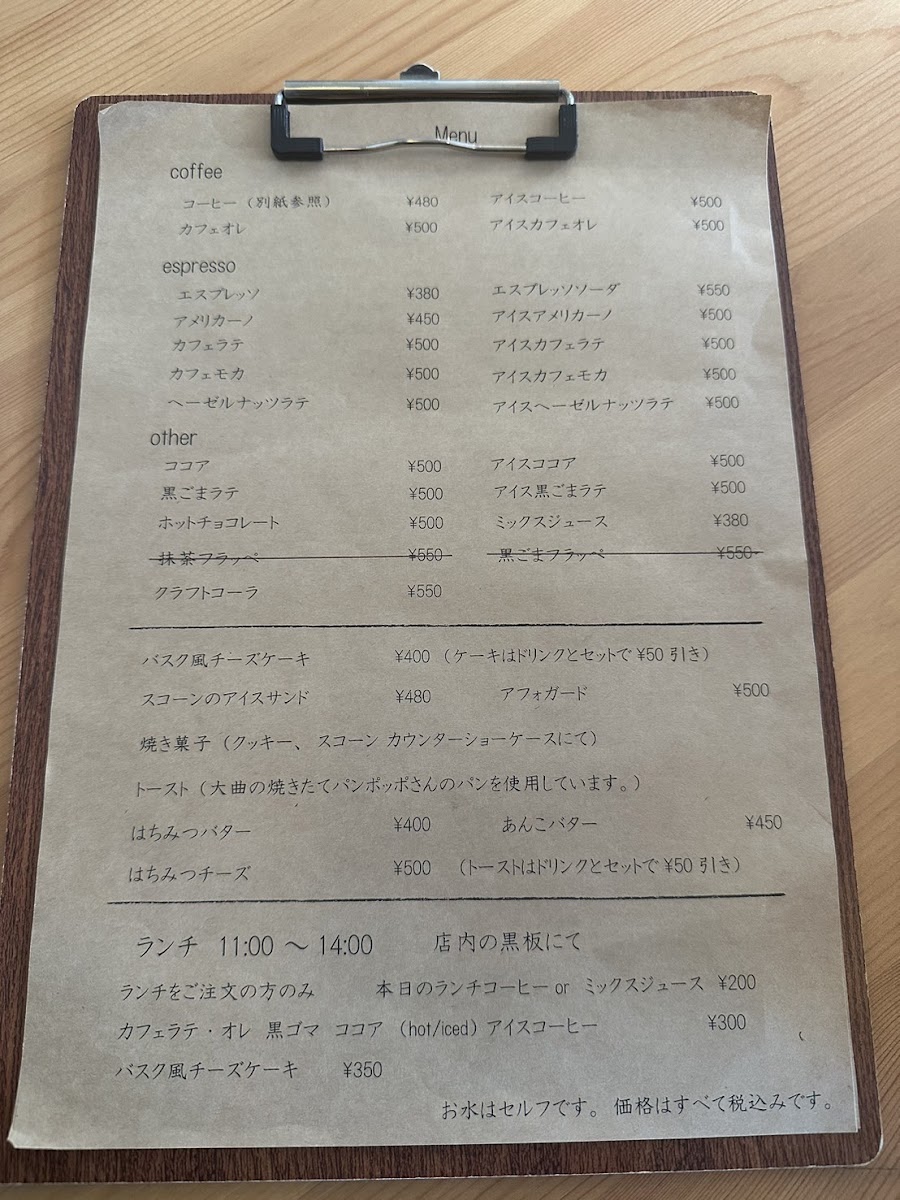 Menu
coffee
コーヒー（別紙参照） ¥480 アイスコーヒー ¥500
カフェオレ ¥500 アイスカフェオレ ¥500
espresso
エスプレッソ ¥380 エスプレッソソーダ ¥550
アメリカーノ ¥450 アイスアメリカーノ ¥500
カフェラテ ¥500 アイスカフェラテ ¥500
カフェモカ ¥500 アイスカフェモカ ¥500
ヘーゼルナッツラテ ¥500 アイスヘーゼルナッツラテ ¥500
other
ココア ¥500 アイスココア ¥500
黒ごまラテ ¥500 アイス黒ごまラテ ¥500
ホットチョコレート ¥500 ミックスジュース ¥380
抹茶フラッペ ¥550 黒ごまフラッペ ¥550
クラフトコーラ ¥550
バスク風チーズケーキ ¥400（ケーキはドリンクとセットで¥50引き）
スコーンのアイスサンド ¥480 アフォガード ¥500
焼き菓子（クッキー、スコーン カウンターショーケースにて）
トースト（大曲の焼きたてパンポッポさんのパンを使用しています。）
はちみつバター ¥400 あんこバター ¥450
はちみつチーズ ¥500（トーストはドリンクとセットで¥50引き）
ランチ 11:00 〜 14:00 店内の黒板にて
ランチをご注文の方のみ 本日のランチコーヒー or ミックスジュース ¥200
カフェラテ・オレ 黒ゴマ ココア （hot/iced）アイスコーヒー ¥300
バスク風チーズケーキ ¥350
お水はセルフです。価格はすべて税込みです。